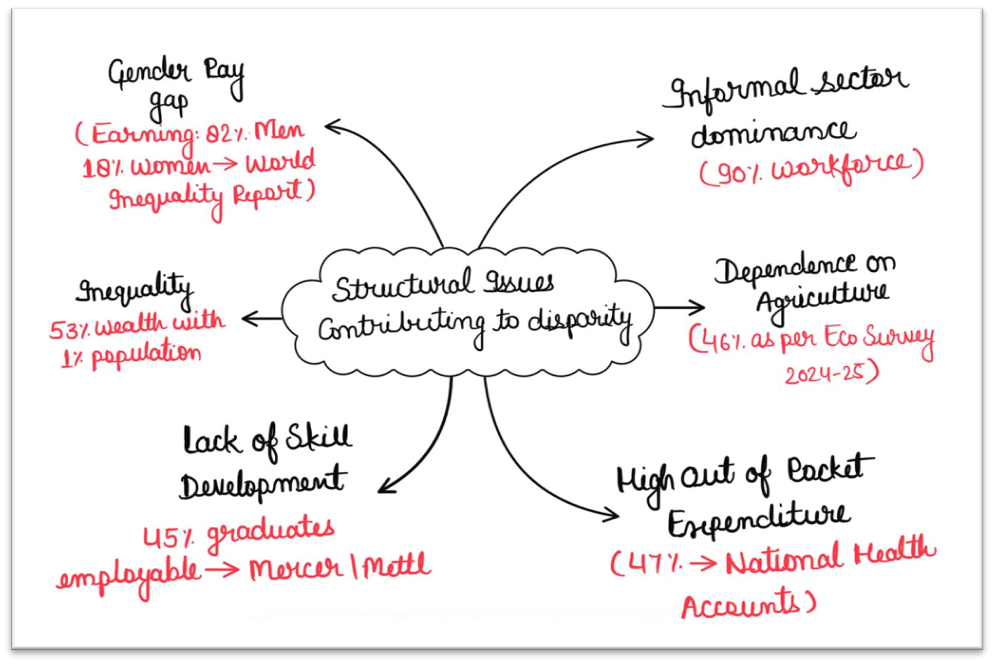 Structural Issues
Contributing to disparity
Gender Pay
gap
(Earning: 82% Men
18% women → World
Inequality Report)
Informal sector
dominance
(90% workforce)
Inequality
53% wealth with
1% population
Dependence on
Agriculture
(46% as per Eco Survey
2024-25)
Lack of Skill
Development
45% graduates
employable → Mercer | Mettl
High Out of Pocket
Expenditure
(47% → National Health
Accounts)